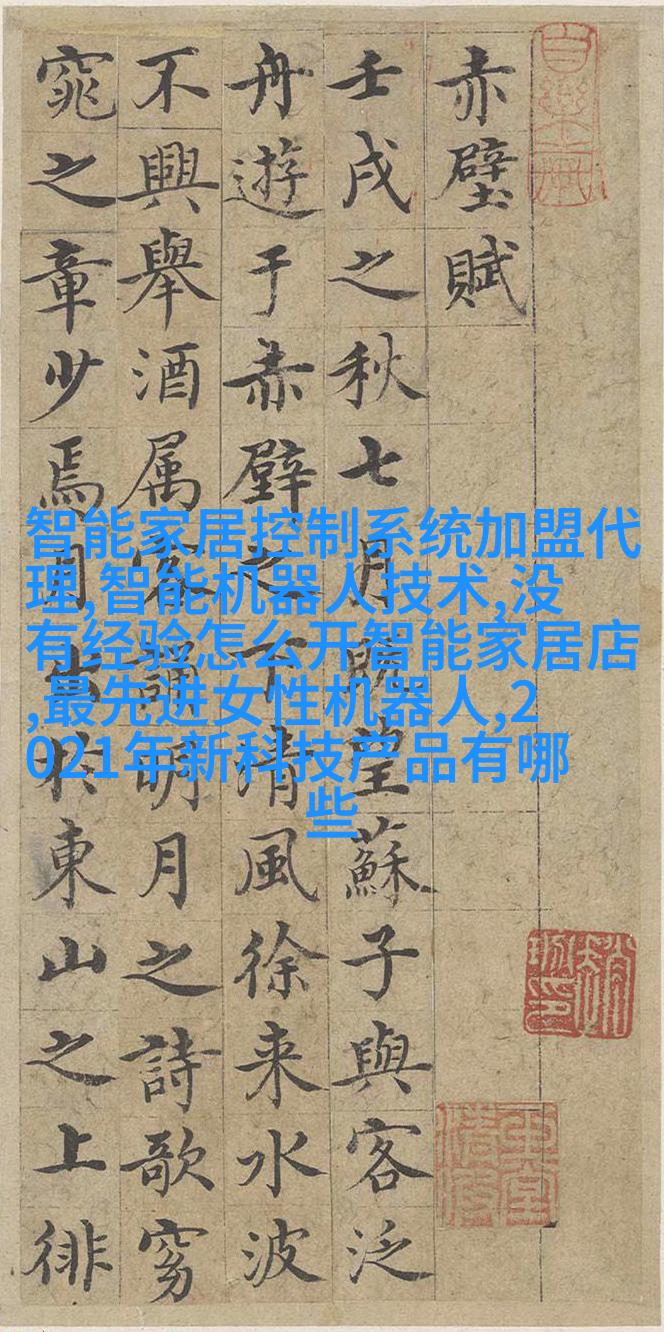 赤壁賦
壬戌之秋七月既望蘇子與客泛
舟遊于赤壁之下清風徐来水波
不興舉酒属客誦明月之詩歌窈
窕之章少焉月出於東山之上徘
智能家居控制系统加盟代
理,智能机器人技术,没
有经验怎么开智能家居店
,最先进女性机器人,2
021年新科技产品有哪
些